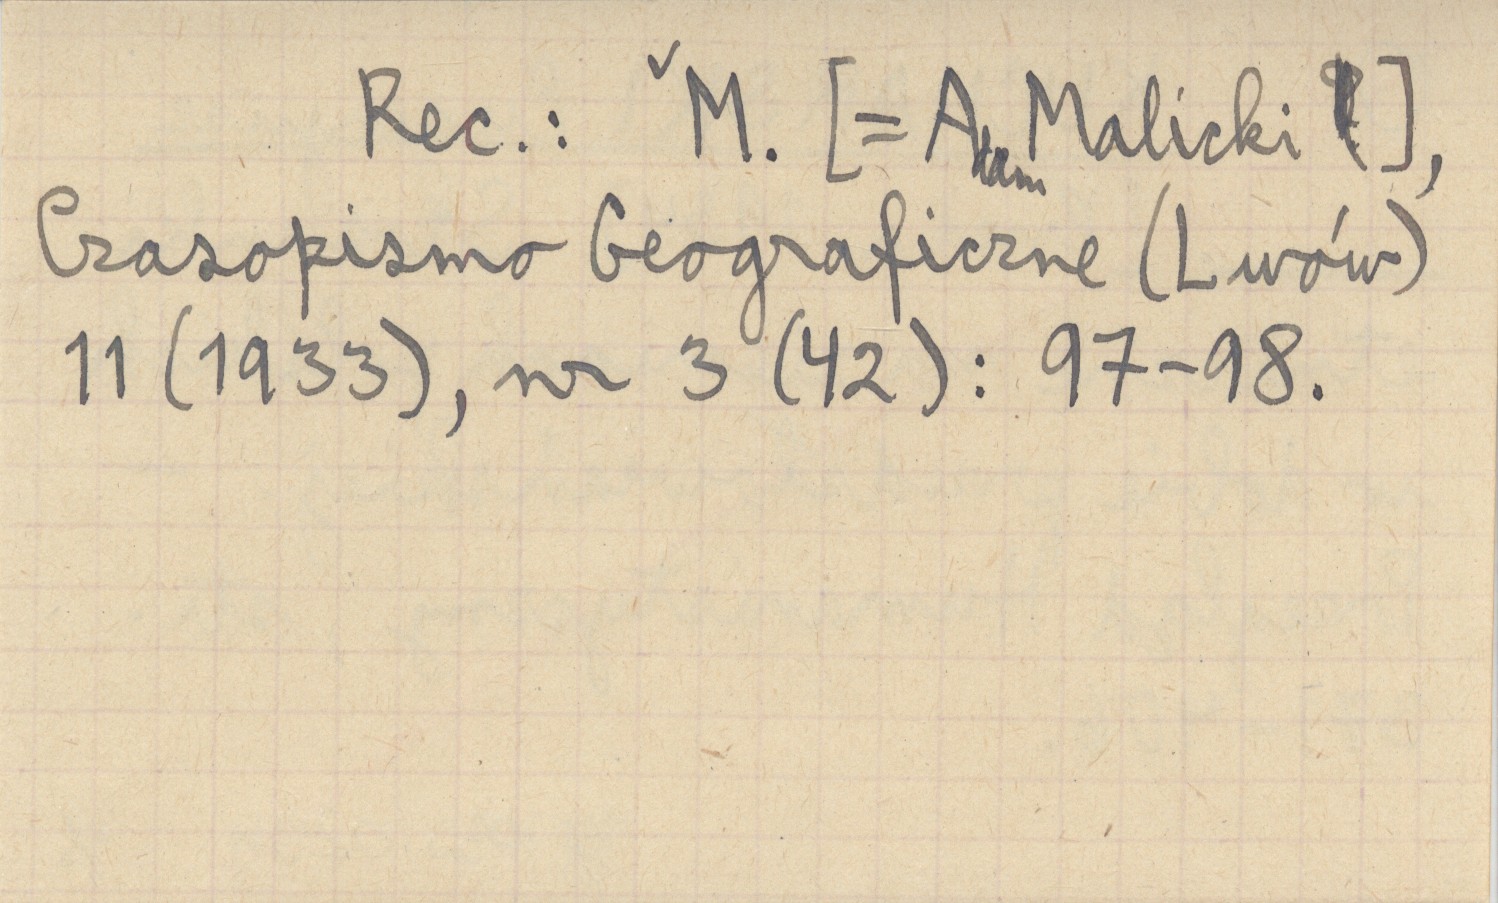 Rec.: ˇM. [= Adam Malicki],
Czasopismo Geograficzne (Lwów)
11 (1933), nr 3 (42): 97-98.